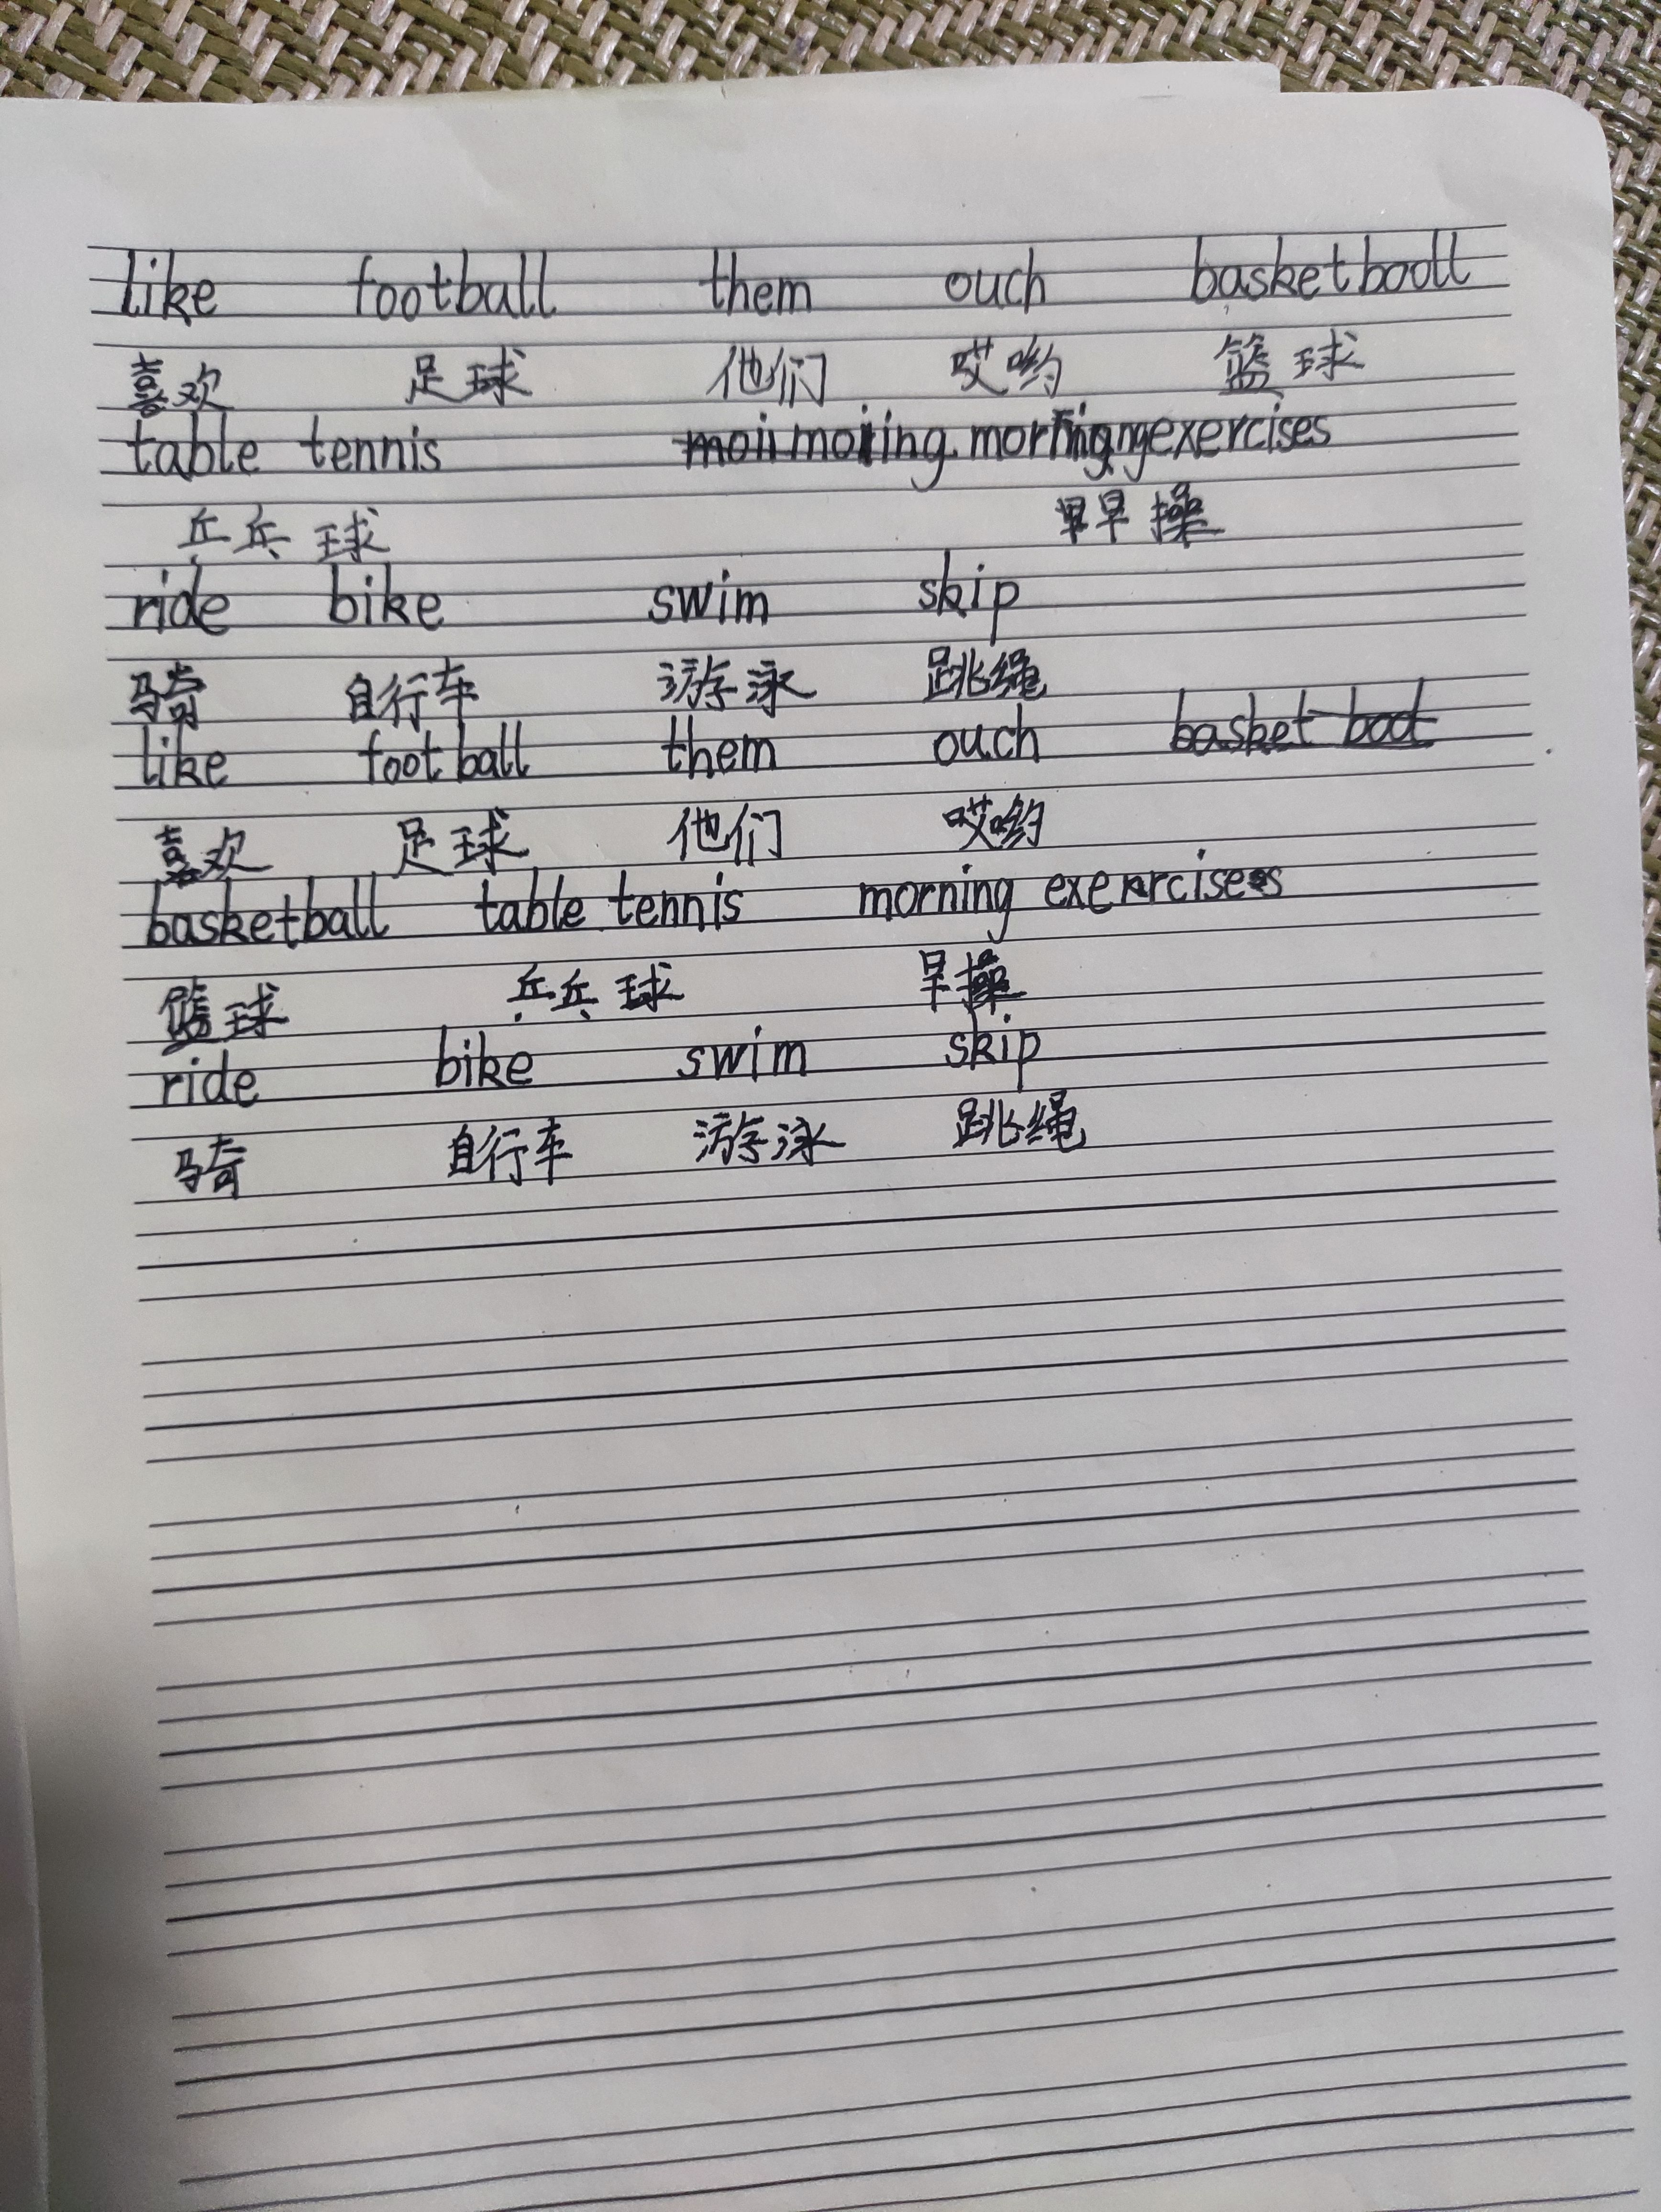 like football them ouch basketball
喜欢 足球 他们 哎哟 篮球
table tennis morning exercises
乒乓球 早操
ride bike swim skip
骑 自行车 游泳 跳绳
like football them ouch
喜欢 足球 他们 哎哟
basketball table tennis morning exercises
篮球 乒乓球 早操
ride bike swim skip
骑 自行车 游泳 跳绳